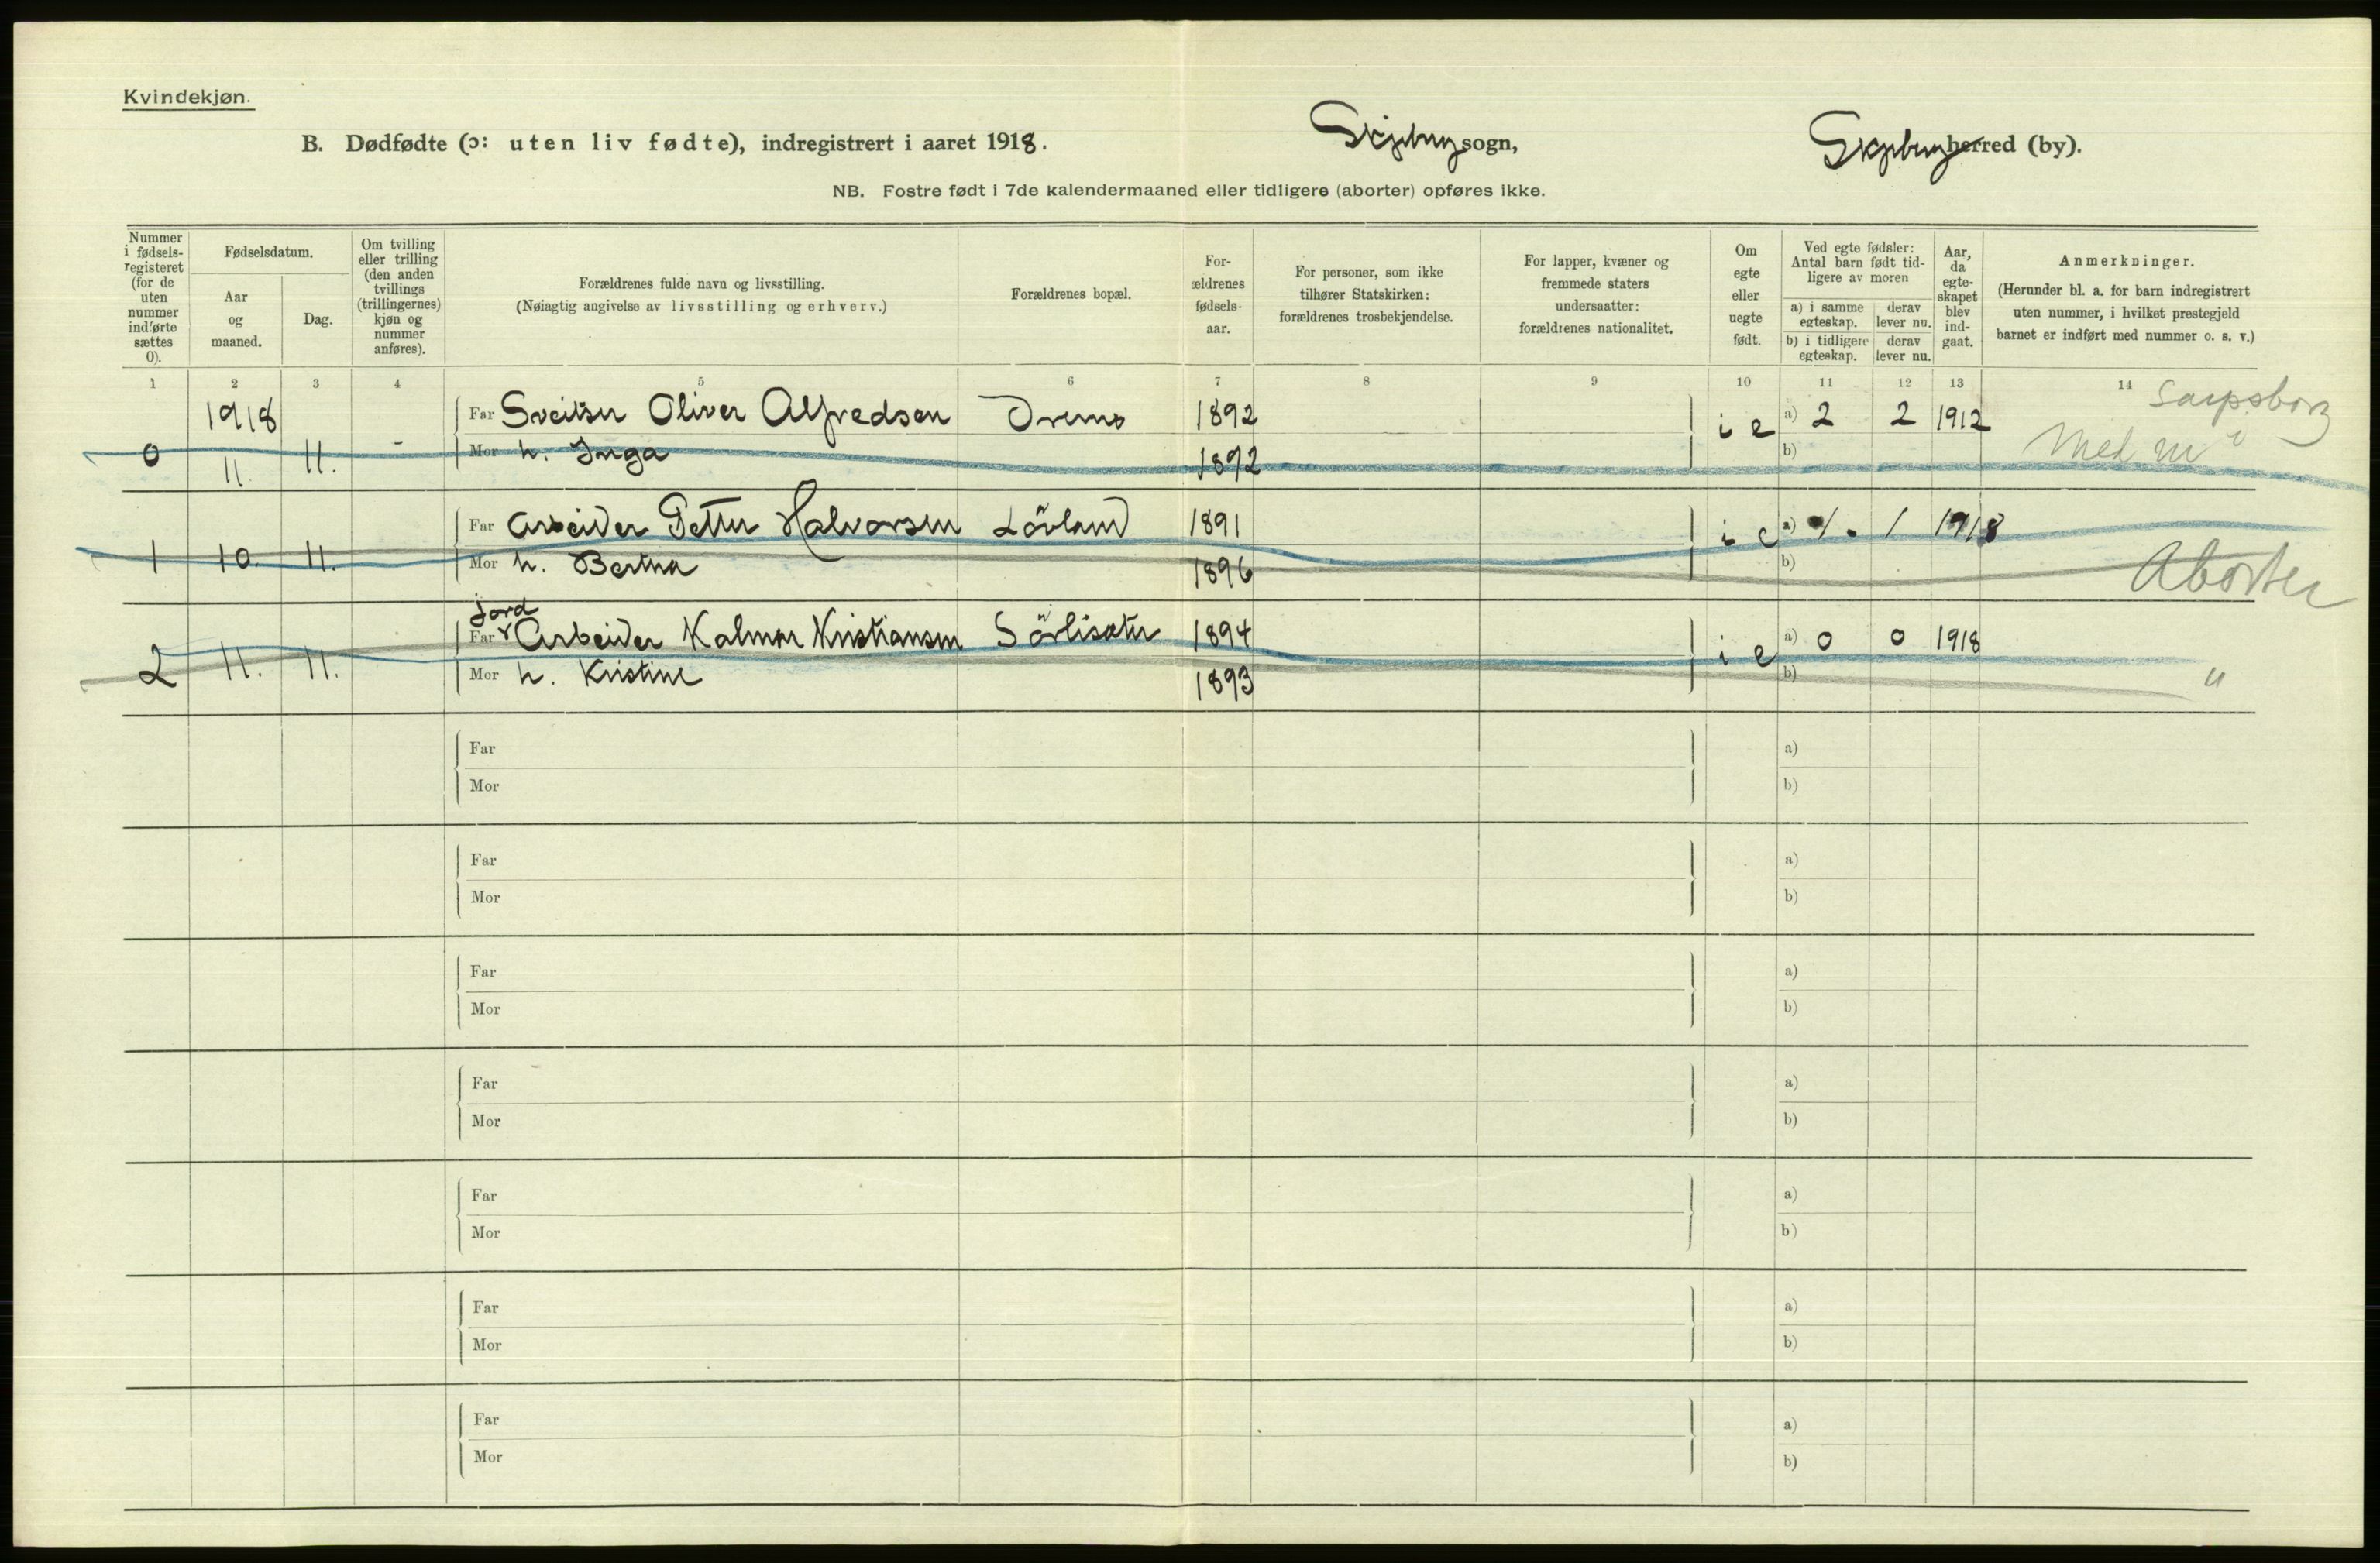 Kvindekjøn.
B. Dødfødte (ɔ: uten liv fødte), indregistrert i aaret 1918. Skjeberg sogn, Skjeberg herred (by).
NB. Fostre født i 7de kalendermaaned eller tidligere (aborter) opføres ikke.
Nummer i fødsels-registeret (for de uten nummer indførte sættes 0).
Fødselsdatum.
Aar og maaned.
Dag.
Om tvilling eller trilling (den anden tvillings (trillingernes) kjøn og nummer anføres).
Forældrenes fulde navn og livsstilling.
(Nøiagtig angivelse av livsstilling og erhverv.)
Forældrenes bopæl.
For-ældrenes fødsels-aar.
For personer, som ikke tilhører Statskirken: forældrenes trosbekjendelse.
For lapper, kvæner og fremmede staters undersaatter: forældrenes nationalitet.
Om egte eller uegte født.
Ved egte fødsler: Antal barn født tid-ligere av moren
a) i samme egteskap. derav lever nu.
b) i tidligere egteskap. derav lever nu.
Aar, da egte-skapet blev ind-gaat.
Anmerkninger.
(Herunder bl. a. for barn indregistrert uten nummer, i hvilket prestegjeld barnet er indført med nummer o. s. v.)
1 2 3 4 5 6 7 8 9 10 11 12 13 14
1918 Far Sveitser Oliver Alfredsen 1892 i e a) 2 2 1912 Sarpsborg
0 11. 11. - Mor h. Inga 1892 b) Med nr i
Far Arbeider Petter Halvorsen Lövland 1891 i e a) 1. 1 1918
1 10. 11. Mor h. Bertha 1896 b) Aborter
Jord
Far Arbeider Kalmar Kristiansen 1894 i e a) 0 0 1918
2 11. 11. Mor h. Kristine 1893 b) "
Far a)
Mor b)
Far a)
Mor b)
Far a)
Mor b)
Far a)
Mor b)
Far a)
Mor b)
Far a)
Mor b)
Far a)
Mor b)